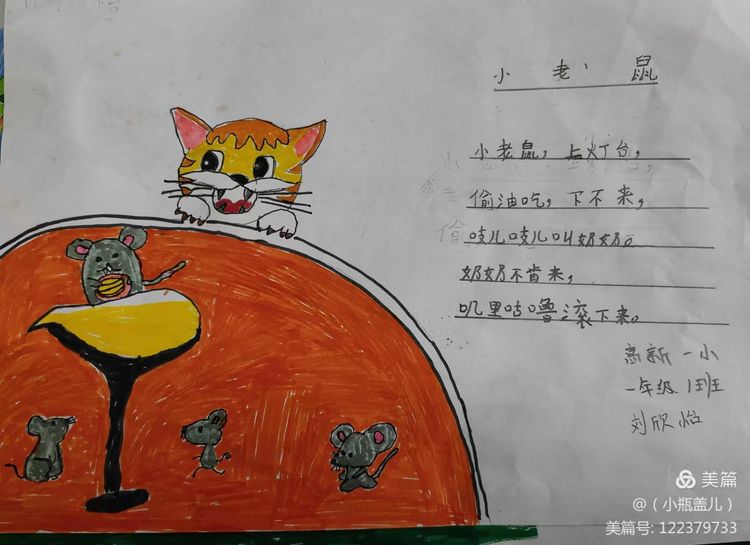 小老鼠
小老鼠，上灯台，
偷油吃，下不来，
吱儿吱儿叫奶奶。
奶奶不肯来，
叽里咕噜滚下来。
高新一小
一年级 1班
刘欣怡
美篇
@（小瓶盖儿）
美篇号: 122379733